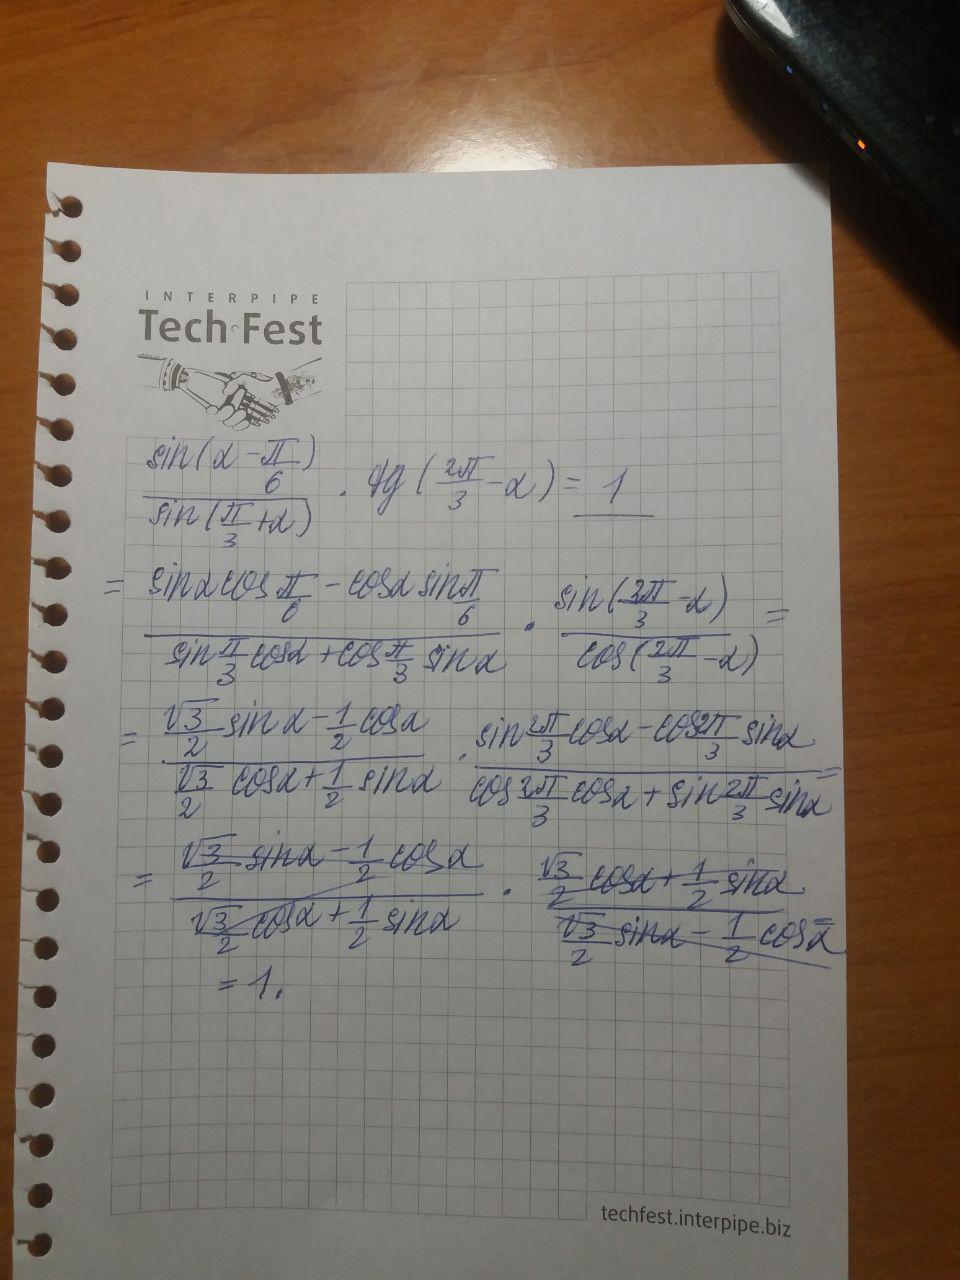 INTERPIPE
Tech Fest
sin(α - π/6) / sin(π/3 + α) · tg(2π/3 - α) = 1
= (sinα cos π/6 - cosα sin π/6) / (sin π/3 cosα + cos π/3 sinα) · sin(2π/3 - α) / cos(2π/3 - α) =
= (√3/2 sinα - 1/2 cosα) / (√3/2 cosα + 1/2 sinα) · (sin 2π/3 cosα - cos 2π/3 sinα) / (cos 2π/3 cosα + sin 2π/3 sinα) =
= (√3/2 sinα - 1/2 cosα) / (√3/2 cosα + 1/2 sinα) · (√3/2 cosα + 1/2 sinα) / (√3/2 sinα - 1/2 cosα) =
= 1.
techfest.interpipe.biz